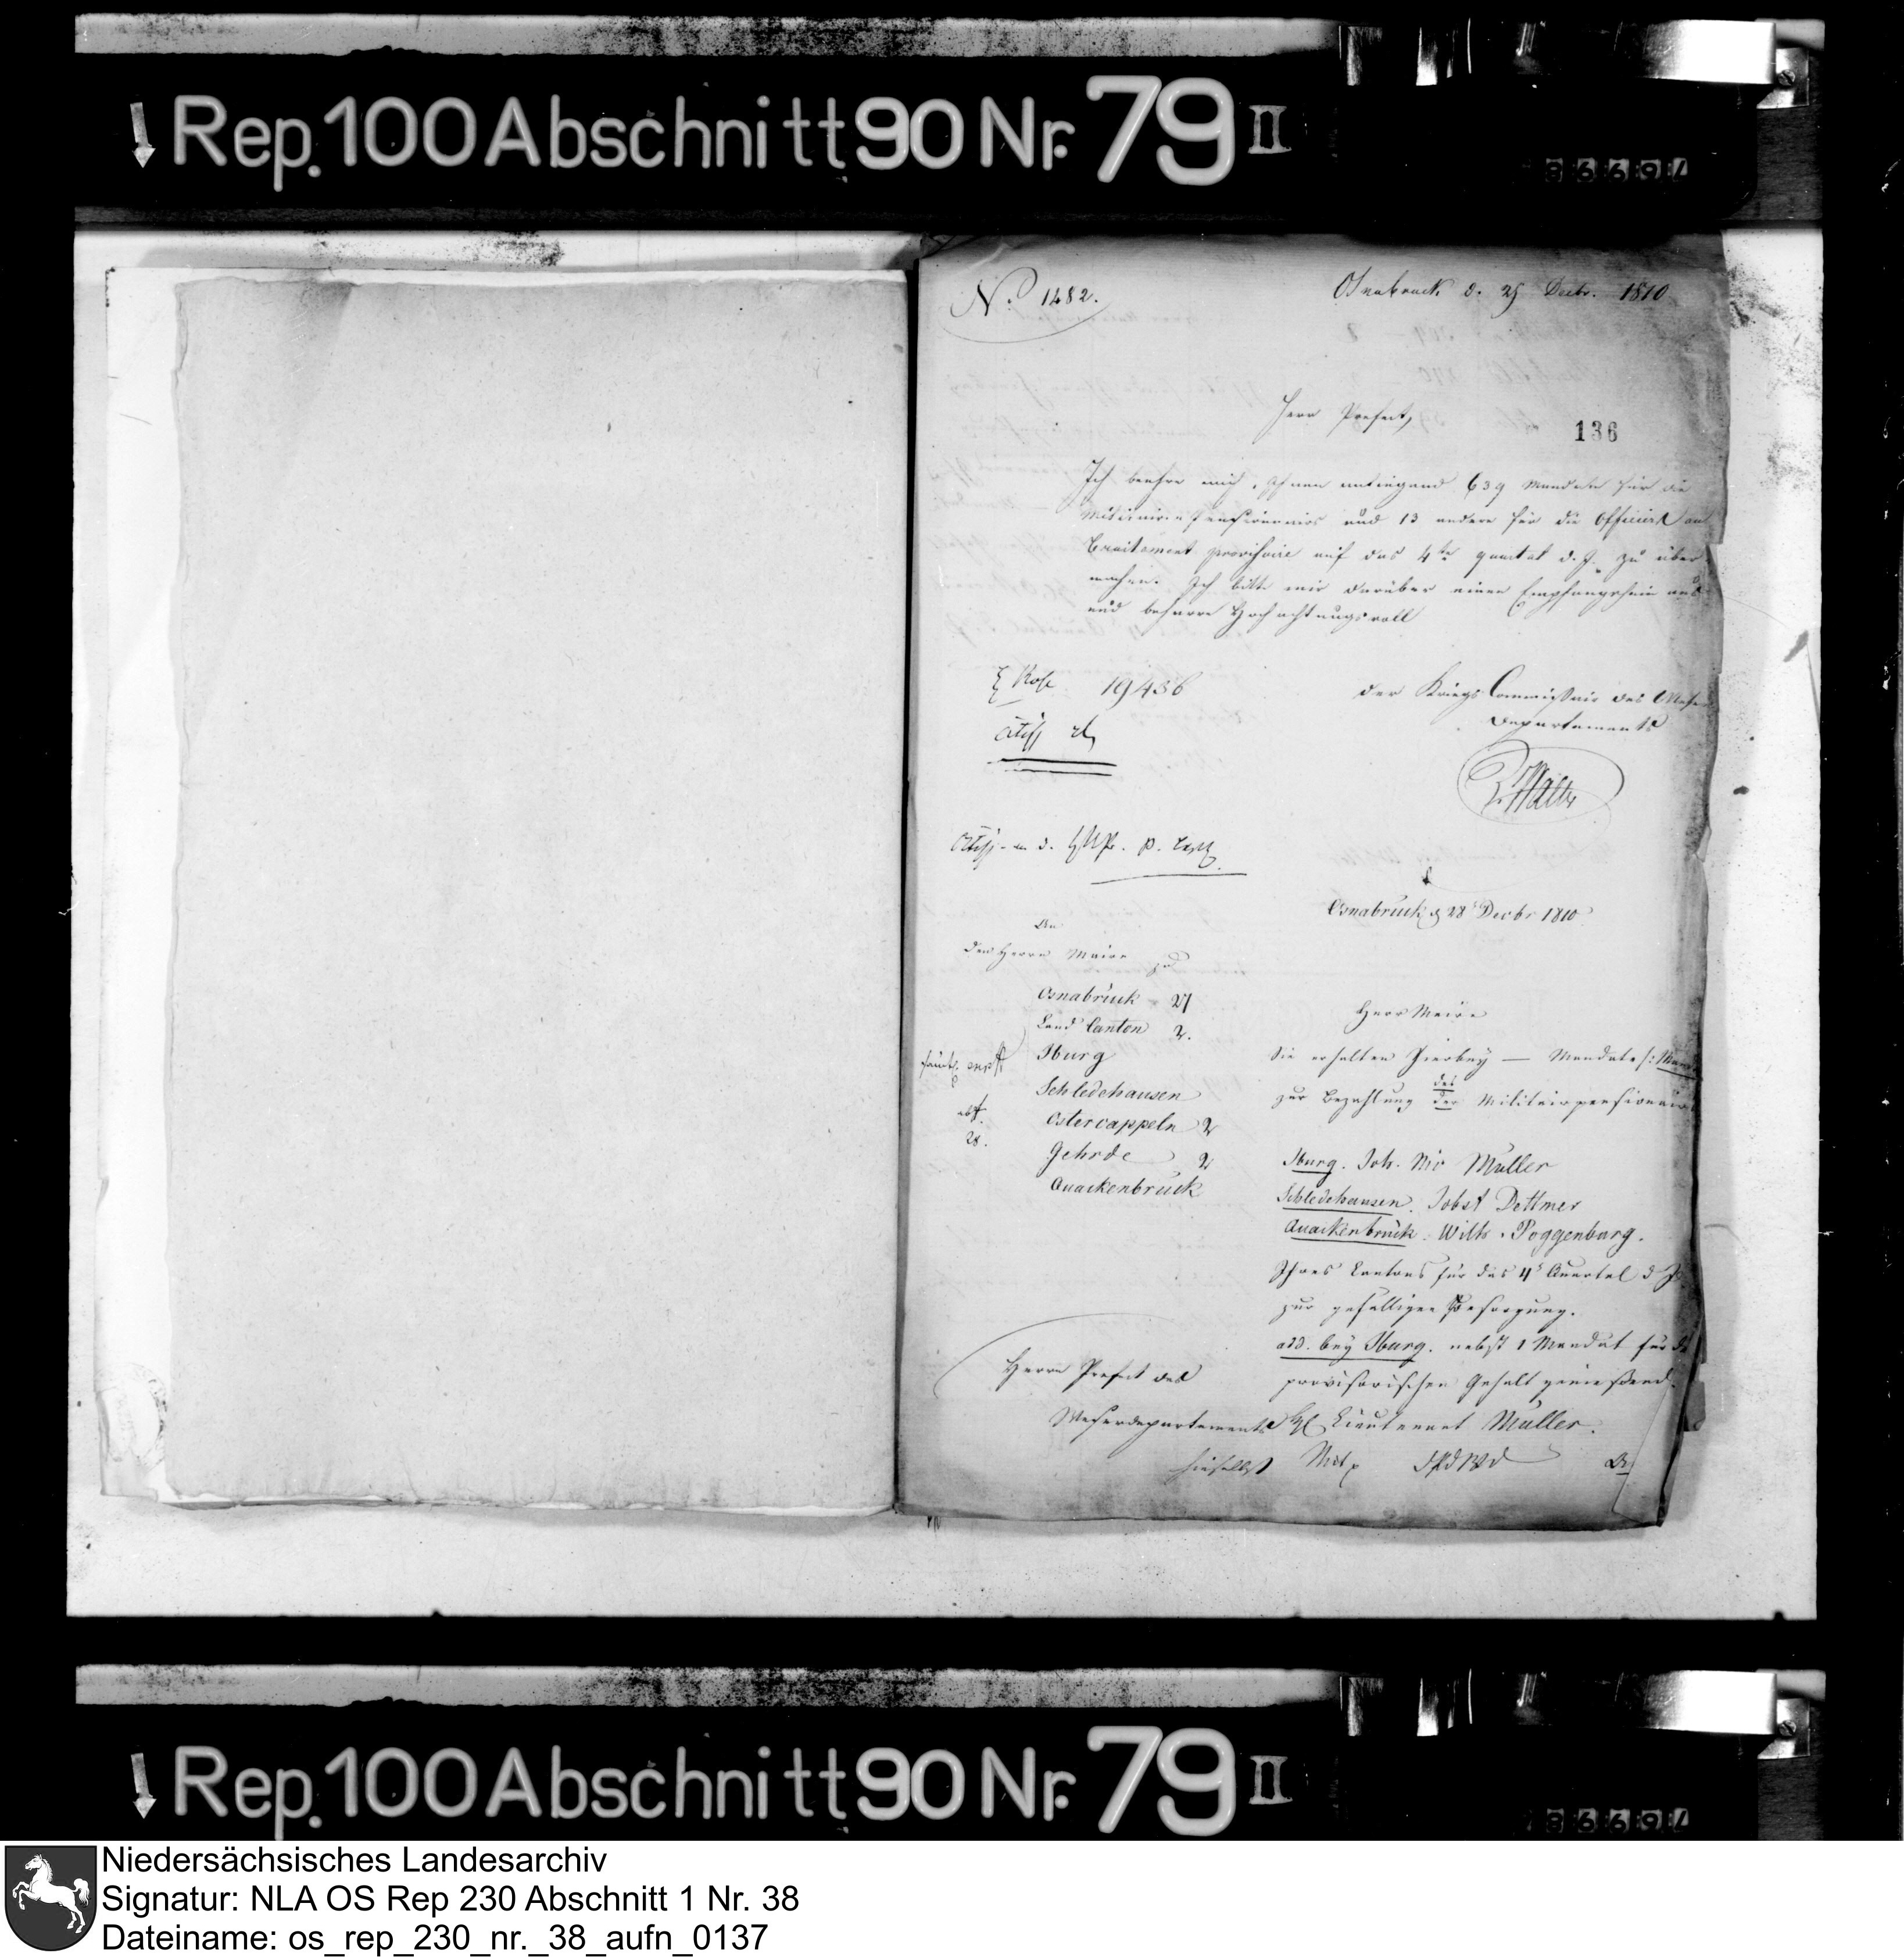 Rep. 100 Abschnitt 90 Nr. 79 II
86697
No. 1482.
Osnabruck d. 25 Decbr. 1810
Herr Praefect,
136
Ich beehre mich, Ihnen anliegend 639 Mandate für die
und 13 andere für die Officiere au
traitement provisoire auf das 4te quartal d. J. zu über
machen. Ich bitte mir darüber einen Empfangschein aus
und beharre Hochachtungsvoll
19436
der Kriegs Commissair des Weser
Departements
Osnabrück d 28 Decbr 1810
An
den Herrn Maire zu
Osnabrück 27
Land Canton 2.
Iburg
Schledehausen
Ostercappeln 2
Gehrde 2
Quackenbrück
28.
Herr Maire
Sie erhalten hierbey — Mandate
zur Bezahlung der des Militairpensionair
Iburg. Joh. Müller
Schledehausen. Jobst Dettmer
Quackenbrück. Wilh. Poggenburg.
Ihres Cantons für das 4te Quartal d J
zur gefälligen Besorgung.
add. bey Iburg. nebst 1 Mandat für d
provisorischen Gehalt genießend.
Lieutenant Müller.
Herrn Praefect des
Weserdepartements
hieselbst
Rep. 100 Abschnitt 90 Nr. 79 II
86697
Niedersächsisches Landesarchiv
Signatur: NLA OS Rep 230 Abschnitt 1 Nr. 38
Dateiname: os_rep_230_nr._38_aufn_0137